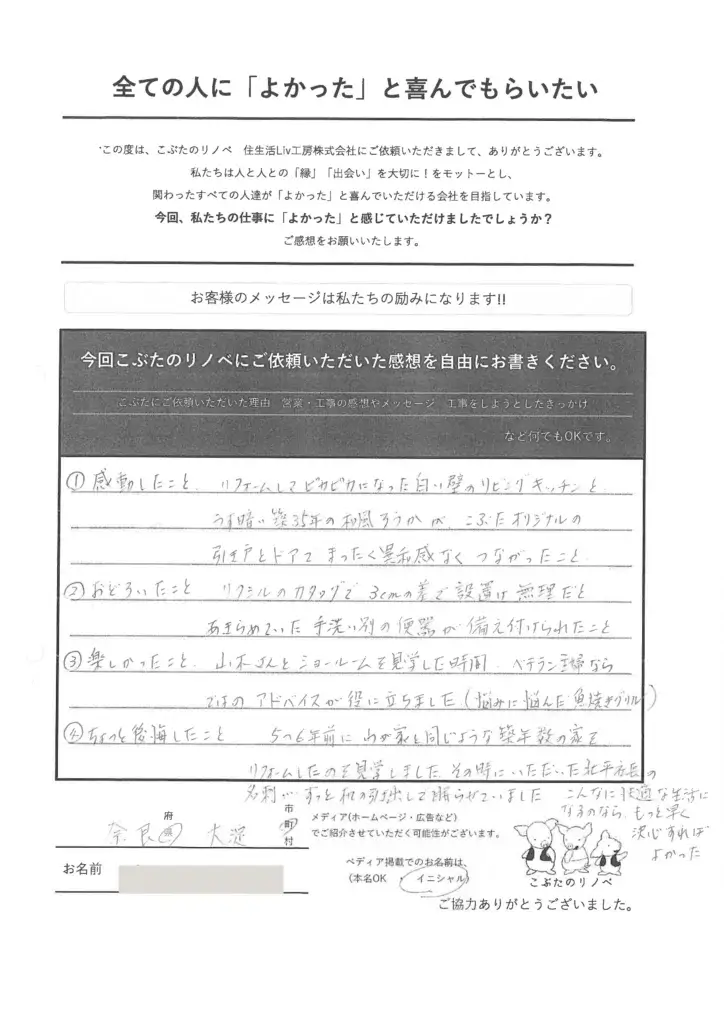 全ての人に「よかった」と喜んでもらいたい
この度は、こぶたのリノベ 住生活Liv工房株式会社にご依頼いただきまして、ありがとうございます。
私たちは人と人との「縁」「出会い」を大切に！をモットーとし、
関わったすべての人達が「よかった」と喜んでいただける会社を目指しています。
今回、私たちの仕事に「よかった」と感じていただけましたでしょうか？
ご感想をお願いいたします。
お客様のメッセージは私たちの励みになります!!
今回こぶたのリノベにご依頼いただいた感想を自由にお書きください。
こぶたにご依頼いただいた理由 営業・工事の感想やメッセージ 工事をしようとしたきっかけ
など何でもOKです。
①感動したこと、リフォームしてピカピカになった白い壁のリビングキッチンと
うす暗い築35年の和風ろうかが、こぶたオリジナルの
引き戸とドアでまったく異和感なくつながったこと
②おどろいたこと リクシルのカタログで3cmの差で設置は無理だと
あきらめていた手洗い別の便器が備え付けられたこと
③楽しかったこと、山本さんとショールームを見学した時間、ベテラン主婦なら
ではのアドバイスが役に立ちました(悩みに悩んだ魚焼きグリル)
④ちょっと後悔したこと 5つ6年前に わが家と同じような築年数の家を
リフォームしたのを見学しました。その時にいただいた北平社長の
名刺… ずっと机の引出しで眠らせていました
こんなに快適な生活に
なるのなら、もっと早く
決心すれば
よかった
奈良県 大淀町
府
県
市
町
村
メディア(ホームページ・広告など)
でご紹介させていただく可能性がございます。
お名前
ペディア掲載でのお名前は、
(本名OK ・ イニシャル)
こぶたのリノベ
ご協力ありがとうございました。